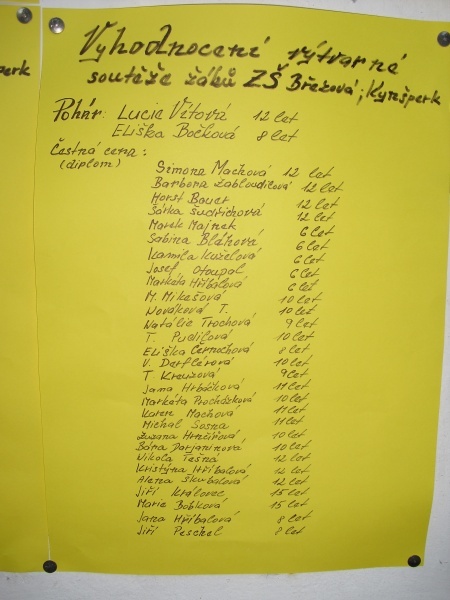 perk
Vyhodnocení výtvarné
soutěže žáků ZŠ Březová, Kynšperk
Pohár: Lucie Vítová 12 let
Eliška Bočková 8 let
Čestná cena:
(diplom)
Simona Machová 12 let
Barbora Zabloudilová 12 let
Horst Bauer 12 let
Šárka Sudřichová 12 let
Marek Majnek 6 let
Sabina Bláhová 6 let
Kamila Kuželová 6 let
Josef Otoupal 6 let
Markéta Hříbalová 6 let
M. Mikešová 10 let
Nováková T. 10 let
Natálie Trochová 9 let
T. Pudilová 10 let
Eliška Černochová 8 let
V. Derflérová 10 let
T. Kreuzová 9 let
Jana Hrbáčková 11 let
Markéta Procházková 10 let
Karen Machová 11 let
Michal Sosna 11 let
Zuzana 10 let
Bára Darjaninová 10 let
Nikola Tesná 12 let
Kristýna Hříbalová 12 let
Alena Škubalová 12 let
Jiří Královec 15 let
Marie Bobková 15 let
Jana Hříbalová 8 let
Jiří Peschel 8 let